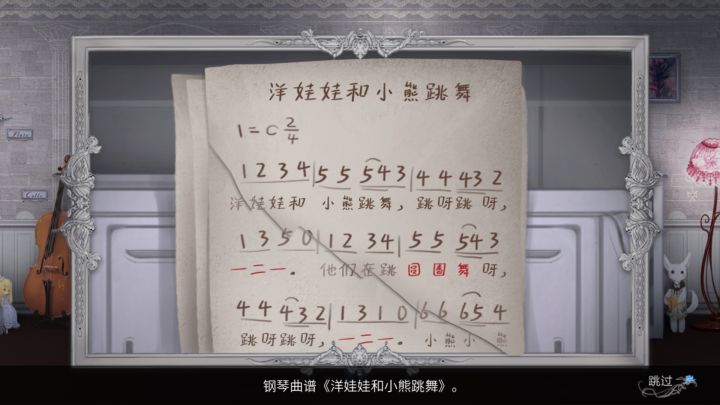 洋娃娃和小熊跳舞
1=C 2/4
1 2 3 4|5 5 543|4 4 432
洋娃娃和 小熊跳舞,跳呀跳呀,
1 3 5 0|1 2 3 4|5 5 543
一二一。他们在跳 圆圈舞呀,
4 4 432|1 3 1 0|6 6 654
跳呀跳呀,一二一。小熊小熊
钢琴曲谱《洋娃娃和小熊跳舞》。
跳过